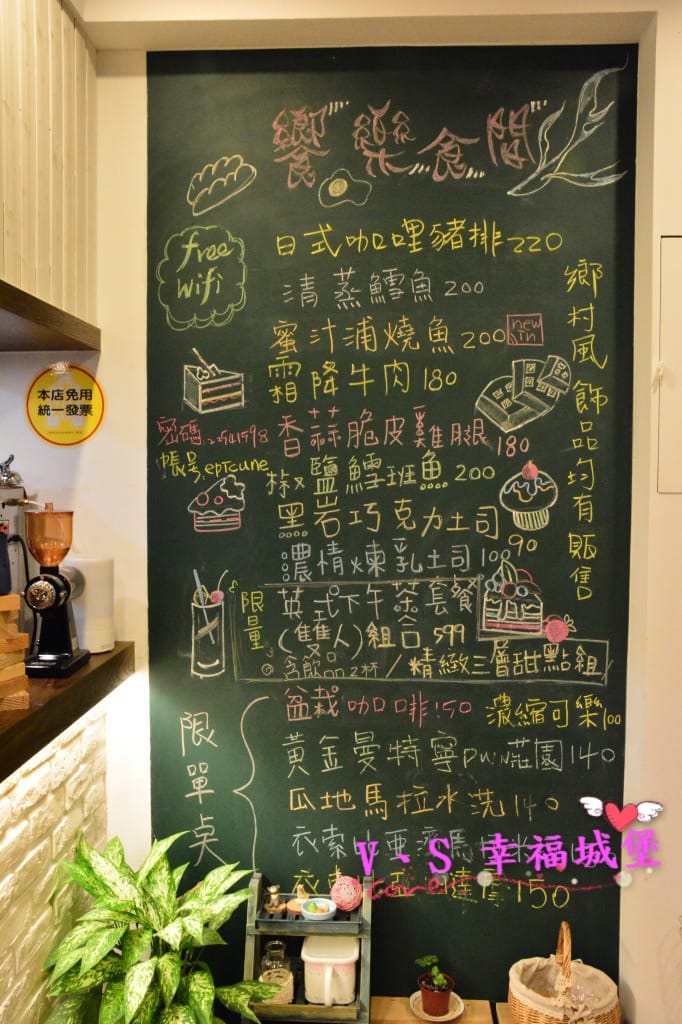 饗樂食間
free
Wifi
日式咖哩豬排220
清蒸鱈魚200
蜜汁浦燒魚200
new
in
霜降牛肉180
香蒜脆皮雞腿180
椒鹽鱈班魚200
黑岩巧克力土司90
濃情煉乳土司100
英式下午茶套餐
(雙人)組合599
含飲品2杯/精緻三層甜點組
限量
鄉村風飾品均有販售
本店免用
統一發票
密碼
帳号
限單點
盆栽咖啡150
濃縮可樂100
黃金曼特寧PWN莊園140
瓜地馬拉水洗140
衣索
150
V、S幸福城堡